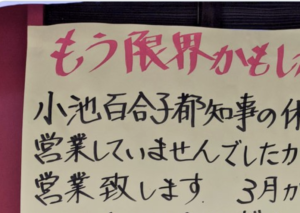 もう限界かもし
小池百合子都知事の休
営業していませんでしたが
営業致します 3月か